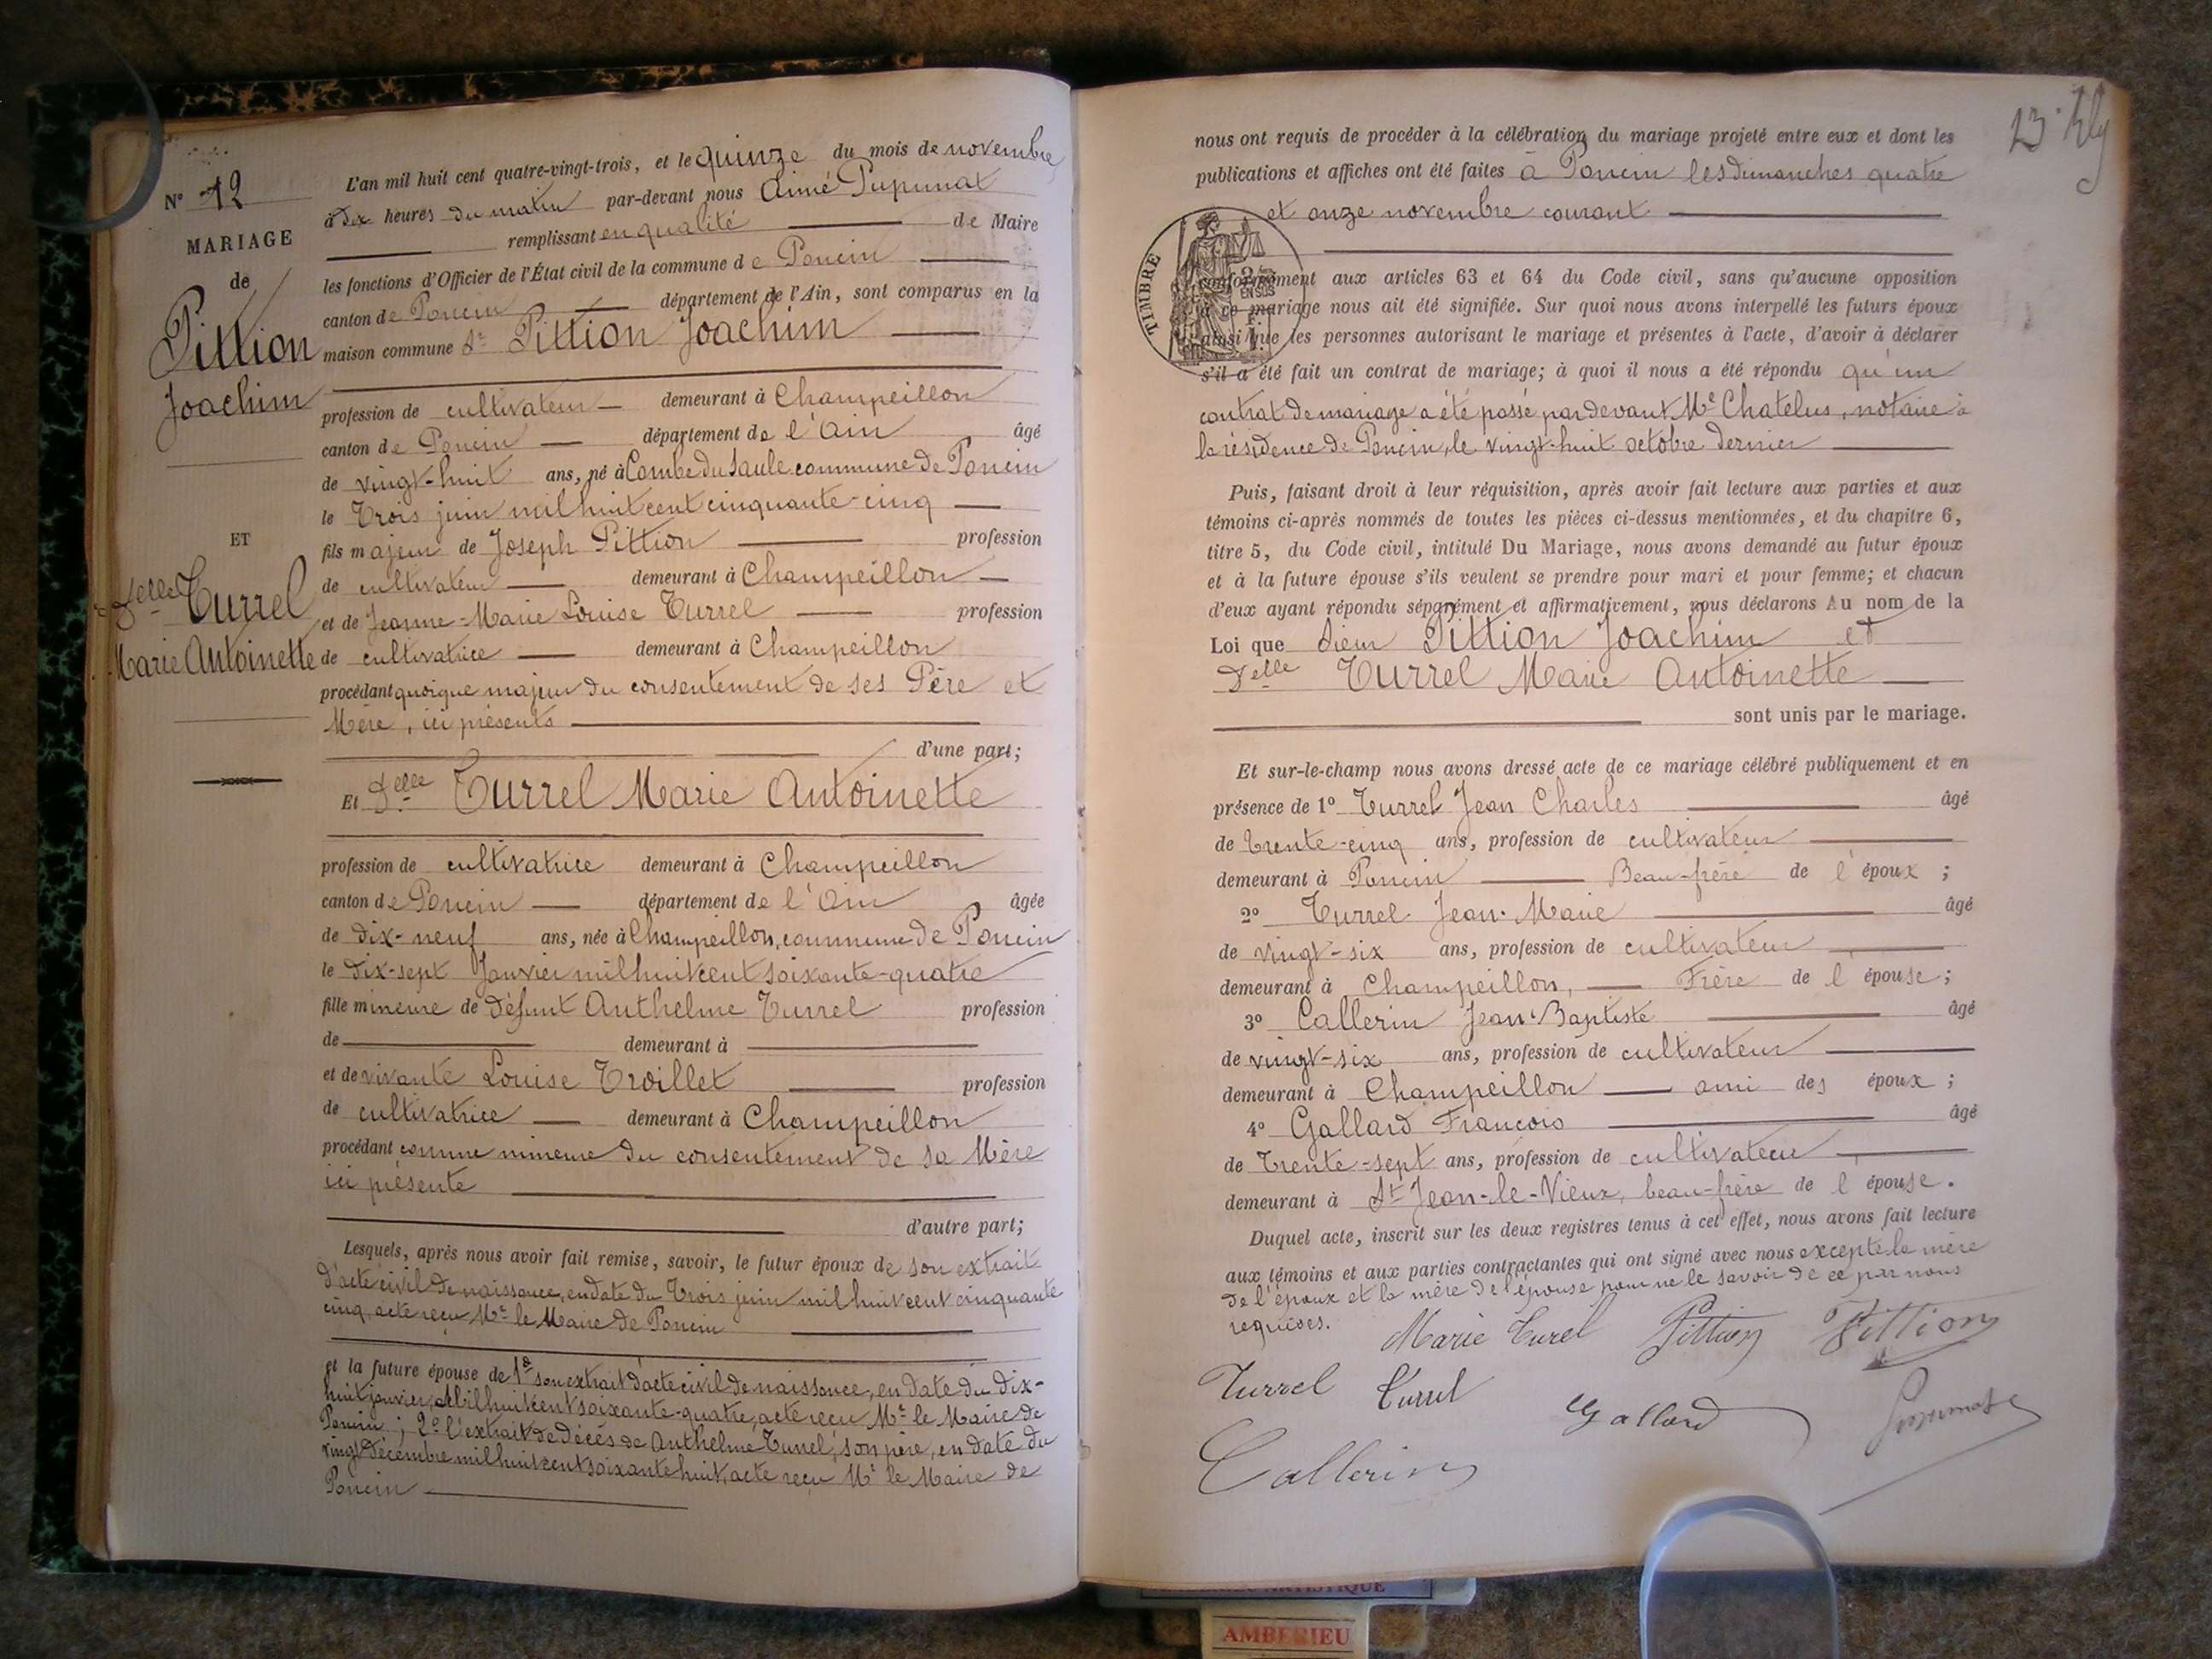 N° 12
MARIAGE
de
Pittion
Joachim
ET
Delle Turrel
Marie Antoinette
L'an mil huit cent quatre-vingt-trois, et le quinze du mois de novembre
à dix heures du matin par-devant nous Aimé Pupunat
remplissant en qualité de Maire
les fonctions d'Officier de l'État civil de la commune de Poncin
canton de Poncin département de l'Ain, sont comparus en la
maison commune Sr Pittion Joachim
profession de cultivateur demeurant à Champeillon
canton de Poncin département de l'Ain âgé
de vingt-huit ans, né à Combe du Saule commune de Poncin
le Trois juin mil huit cent cinquante-cinq
fils majeur de Joseph Pittion profession
de cultivateur demeurant à Champeillon
et de Jeanne-Marie Louise Turrel profession
de cultivatrice demeurant à Champeillon
procédant quoique majeur du consentement de ses Père et
Mère, ici présents
d'une part;
Et Delle Turrel Marie Antoinette
profession de cultivatrice demeurant à Champeillon
canton de Poncin département de l'Ain âgée
de dix-neuf ans, née à Champeillon, commune de Poncin
le dix-sept Janvier mil huit cent soixante-quatre
fille mineure de défunt Anthelme Turrel profession
de demeurant à
et de vivante Louise Troillet profession
de cultivatrice demeurant à Champeillon
procédant comme mineure du consentement de sa Mère
ici présente
d'autre part;
Lesquels, après nous avoir fait remise, savoir, le futur époux de son extrait
d'acte civil de naissance, en date du Trois juin mil huit cent cinquante
cinq, acte reçu Mr le Maire de Poncin
et la future épouse de 1° son extrait d'acte civil de naissance, en date du dix-
huit janvier, Mil huit cent soixante-quatre, acte reçu Mr le Maire de
Poncin ; 2° l'extrait de décès de Anthelme Turrel, son père, en date du
vingt décembre mil huit cent soixante huit, acte reçu Mr le Maire de
Poncin
nous ont requis de procéder à la célébration du mariage projeté entre eux et dont les
publications et affiches ont été faites à Poncin les dimanches quatre
et onze novembre courant
TIMBRE
conformément aux articles 63 et 64 du Code civil, sans qu'aucune opposition
à ce mariage nous ait été signifiée. Sur quoi nous avons interpellé les futurs époux
ainsi que les personnes autorisant le mariage et présentes à l'acte, d'avoir à déclarer
s'il a été fait un contrat de mariage; à quoi il nous a été répondu qu'un
contrat de mariage a été passé par devant Me Chatelus, notaire à
la résidence de Poncin, le vingt-huit octobre dernier
Puis, faisant droit à leur réquisition, après avoir fait lecture aux parties et aux
témoins ci-après nommés de toutes les pièces ci-dessus mentionnées, et du chapitre 6,
titre 5, du Code civil, intitulé Du Mariage, nous avons demandé au futur époux
et à la future épouse s'ils veulent se prendre pour mari et pour femme; et chacun
d'eux ayant répondu séparément et affirmativement, nous déclarons Au nom de la
Loi que Sieur Pittion Joachim et
Delle Turrel Marie Antoinette
sont unis par le mariage.
Et sur-le-champ nous avons dressé acte de ce mariage célébré publiquement et en
présence de 1° Turrel Jean Charles âgé
de Trente-cinq ans, profession de cultivateur
demeurant à Poncin Beau-frère de l'époux ;
2° Turrel Jean-Marie âgé
de vingt-six ans, profession de cultivateur
demeurant à Champeillon, Frère de l'épouse ;
3° Callerin Jean-Baptiste âgé
de vingt-six ans, profession de cultivateur
demeurant à Champeillon ami des époux ;
4° Gallard François âgé
de Trente-sept ans, profession de cultivateur
demeurant à St Jean-le-Vieux, beau-frère de l'épouse.
Duquel acte, inscrit sur les deux registres tenus à cet effet, nous avons fait lecture
aux témoins et aux parties contractantes qui ont signé avec nous excepté la mère
de l'époux et la mère de l'épouse pour ne le savoir de ce par nous
requises.
Marie Turel Pittion Pittion
Turrel Turrel Gallard Pupunat
Callerin
AMBERIEU